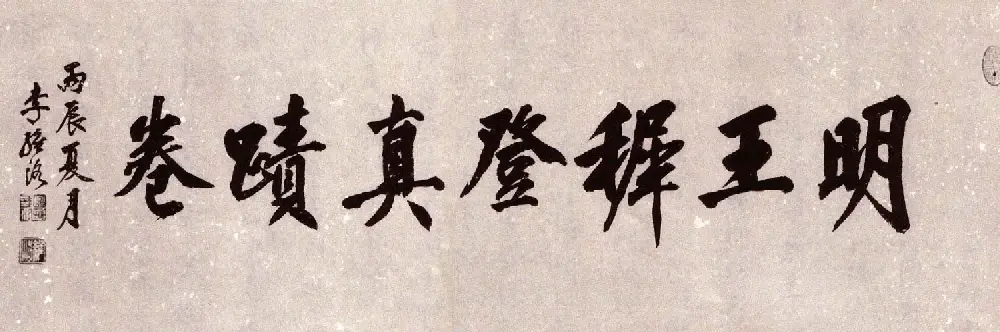 明王穉登真蹟卷
丙辰夏月
李経洛